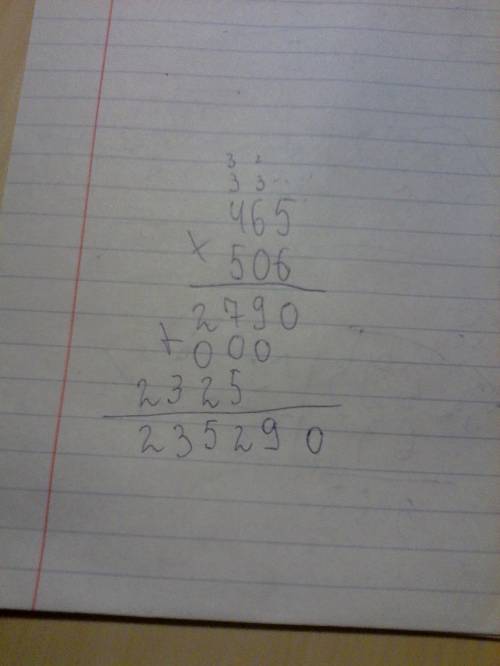 3 2
3 3
465
× 506
2790
+ 000
2325
235290